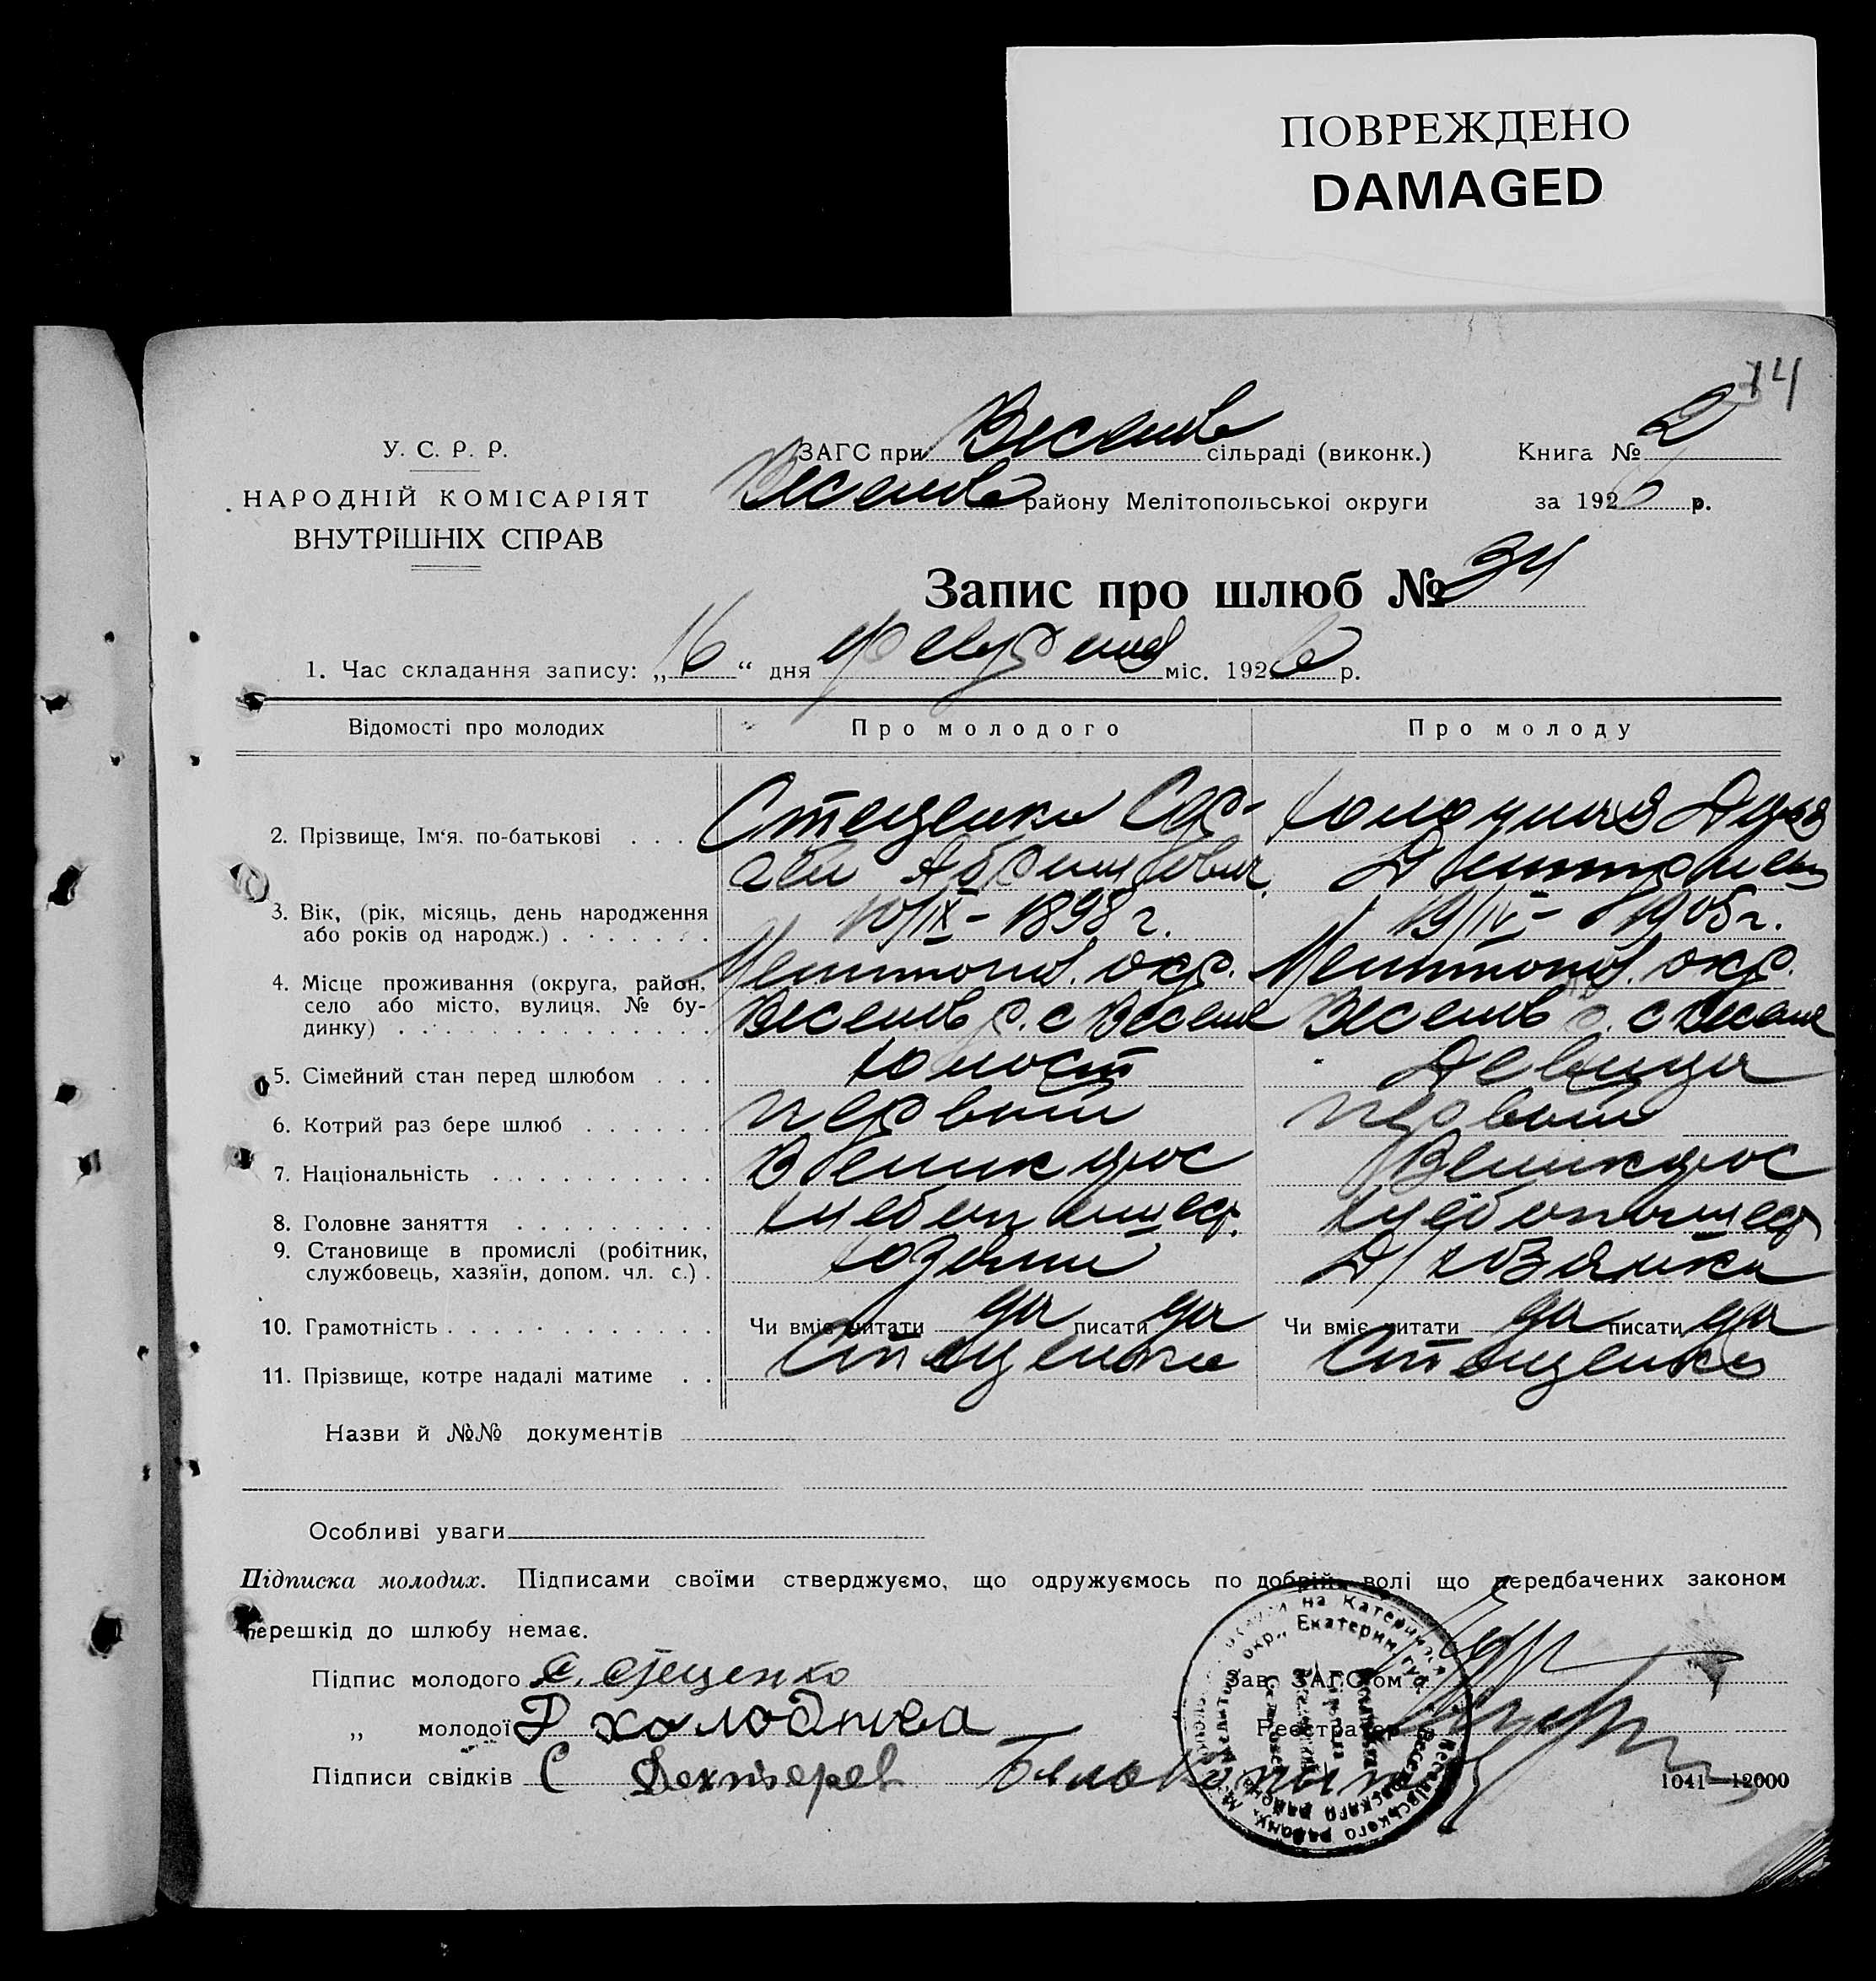 ПОВРЕЖДЕНО
DAMAGED
74
У. С. Р. Р.
НАРОДНІЙ КОМІСАРІЯТ
ВНУТРІШНІХ СПРАВ
ЗАГС при Веселов сільраді (виконк.)
Веселов району Мелітопольської округи
Книга № 2
за 1926 р.
Запис про шлюб № 34
1. Час складання запису: „16“ дня февраля міс. 1926 р.
Відомості про молодих Про молодого Про молоду
2. Прізвище, Ім‘я, по-батькові . . . . Стеценко Сер- Холодная Дарья
гей Абрамович. Дмитриев
3. Вік, (рік, місяць, день народження 10/IX - 1898 г. 19/IV - 1905 г.
або років од народж.) . . . . . . .
4. Місце проживання (округа, район, Мелитопол. окр. Мелитопол. окр.
село або місто, вулиця, № бу- Веселов р. с Весело Веселов р. с Веселое
динку) . . . . . . . . . . . . . .
5. Сімейний стан перед шлюбом . . . холост Девица
6. Котрий раз бере шлюб . . . . . . первый первый
7. Національність . . . . . . . . . . Великорос Великорос
8. Головне заняття . . . . . . . . . хлебопашец. хлебопашец
9. Становище в промислі (робітник, хозяин Д/хозяйка
службовець, хазяїн, допом. чл. с.) .
10. Грамотність . . . . . . . . . . . . Чи вміє читати да писати да Чи вміє читати да писати да
11. Прізвище, котре надалі матиме . . Стеценко Стеценко
Назви й №№ документів
Особливі уваги
Підписка молодих. Підписами своїми стверджуємо, що одружуємось по добрій волі що передбачених законом
перешкід до шлюбу немає.
Підпис молодого С. Стеценко
Зав. ЗАГС'ом
„ молодої Д холодная
Реєстратор
Підписи свідків С Дехтерев
1041—12000